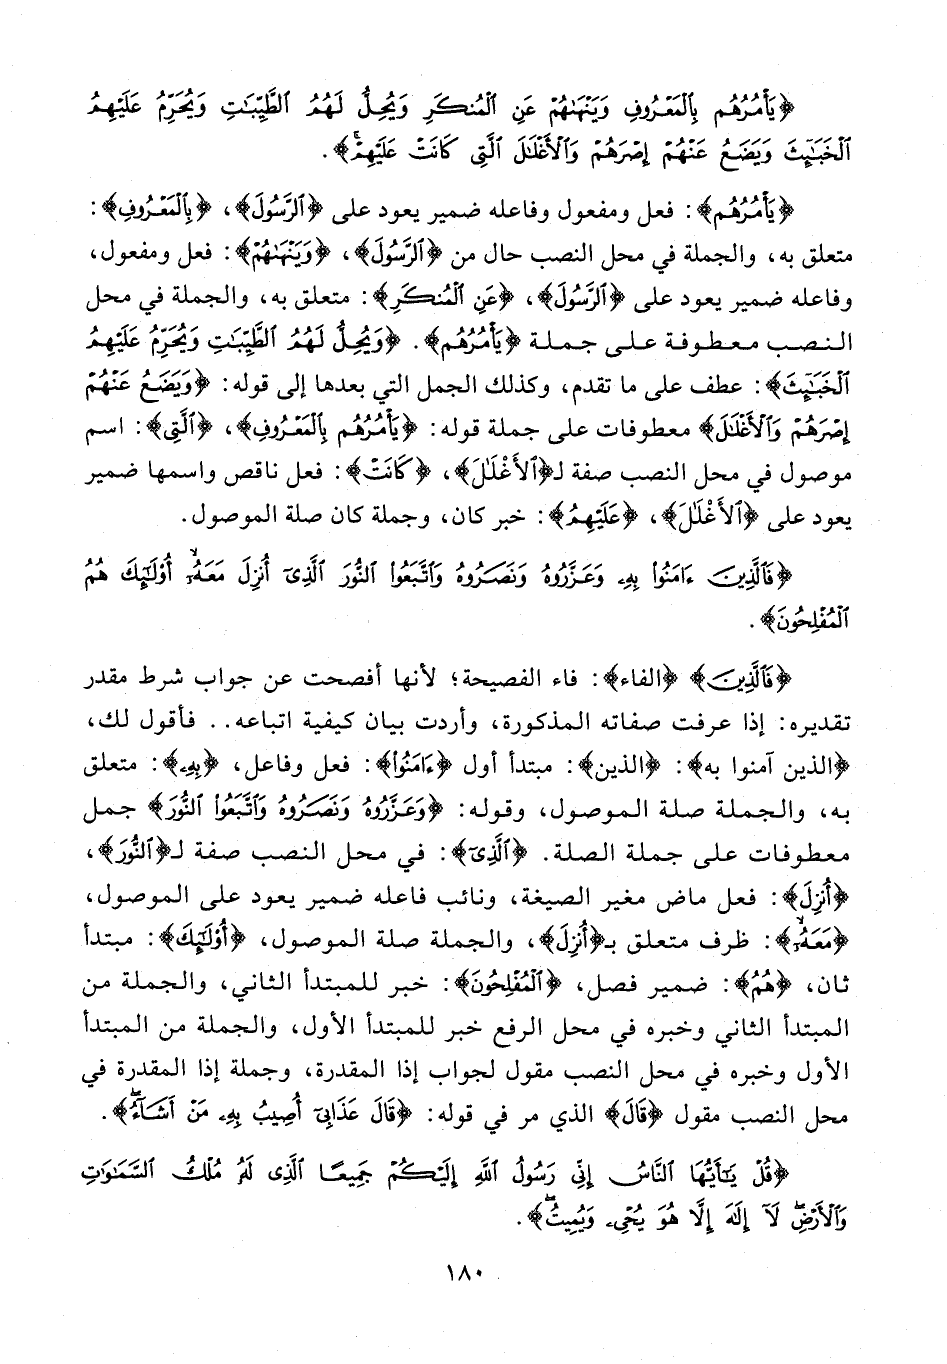 ﴿يَأْمُرُهُم بِالْمَعْرُوفِ وَيَنْهَىٰهُمْ عَنِ الْمُنكَرِ وَيُحِلُّ لَهُمُ الطَّيِّبَٰتِ وَيُحَرِّمُ عَلَيْهِمُ
الْخَبَٰٓئِثَ وَيَضَعُ عَنْهُمْ إِصْرَهُمْ وَالْأَغْلَٰلَ الَّتِى كَانَتْ عَلَيْهِمْ﴾.
﴿يَأْمُرُهُم﴾: فعل ومفعول وفاعله ضمير يعود على ﴿الرَّسُولَ﴾، ﴿بِالْمَعْرُوفِ﴾:
متعلق به، والجملة في محل النصب حال من ﴿الرَّسُولَ﴾، ﴿وَيَنْهَىٰهُمْ﴾: فعل ومفعول،
وفاعله ضمير يعود على ﴿الرَّسُولَ﴾، ﴿عَنِ الْمُنكَرِ﴾: متعلق به، والجملة في محل
النصب معطوفة على جملة ﴿يَأْمُرُهُم﴾. ﴿وَيُحِلُّ لَهُمُ الطَّيِّبَٰتِ وَيُحَرِّمُ عَلَيْهِمُ
الْخَبَٰٓئِثَ﴾: عطف على ما تقدم، وكذلك الجمل التي بعدها إلى قوله: ﴿وَيَضَعُ عَنْهُمْ
إِصْرَهُمْ وَالْأَغْلَٰلَ﴾ معطوفات على جملة قوله: ﴿يَأْمُرُهُم بِالْمَعْرُوفِ﴾، ﴿الَّتِى﴾: اسم
موصول في محل النصب صفة لـ﴿الْأَغْلَٰلَ﴾، ﴿كَانَتْ﴾: فعل ناقص واسمها ضمير
يعود على ﴿الْأَغْلَٰلَ﴾، ﴿عَلَيْهِمْ﴾: خبر كان، وجملة كان صلة الموصول.
﴿فَالَّذِينَ ءَامَنُوا۟ بِهِۦ وَعَزَّرُوهُ وَنَصَرُوهُ وَاتَّبَعُوا۟ النُّورَ الَّذِىٓ أُنزِلَ مَعَهُۥٓ ۙ أُو۟لَٰٓئِكَ هُمُ
الْمُفْلِحُونَ﴾.
﴿فَالَّذِينَ﴾ ﴿الفاء﴾: فاء الفصيحة؛ لأنها أفصحت عن جواب شرط مقدر
تقديره: إذا عرفت صفاته المذكورة، وأردت بيان كيفية اتباعه.. فأقول لك،
﴿الذين آمنوا به﴾: ﴿الذين﴾: مبتدأ أول ﴿ءَامَنُوا۟﴾: فعل وفاعل، ﴿بِهِۦ﴾: متعلق
به، والجملة صلة الموصول، وقوله: ﴿وَعَزَّرُوهُ وَنَصَرُوهُ وَاتَّبَعُوا۟ النُّورَ﴾ جمل
معطوفات على جملة الصلة. ﴿الَّذِىٓ﴾: في محل النصب صفة لـ﴿النُّورَ﴾،
﴿أُنزِلَ﴾: فعل ماض مغير الصيغة، ونائب فاعله ضمير يعود على الموصول،
﴿مَعَهُۥٓ ۙ﴾: ظرف متعلق بـ﴿أُنزِلَ﴾، والجملة صلة الموصول، ﴿أُو۟لَٰٓئِكَ﴾: مبتدأ
ثان، ﴿هُمُ﴾: ضمير فصل، ﴿الْمُفْلِحُونَ﴾: خبر للمبتدأ الثاني، والجملة من
المبتدأ الثاني وخبره في محل الرفع خبر للمبتدأ الأول، والجملة من المبتدأ
الأول وخبره في محل النصب مقول لجواب إذا المقدرة، وجملة إذا المقدرة في
محل النصب مقول ﴿قَالَ﴾ الذي مر في قوله: ﴿قَالَ عَذَابِىٓ أُصِيبُ بِهِۦ مَنْ أَشَآءُ ۖ﴾.
﴿قُلْ يَٰٓأَيُّهَا النَّاسُ إِنِّى رَسُولُ اللَّهِ إِلَيْكُمْ جَمِيعًا الَّذِى لَهُۥ مُلْكُ السَّمَٰوَٰتِ
وَالْأَرْضِ ۖ لَآ إِلَٰهَ إِلَّا هُوَ يُحْىِۦ وَيُمِيتُ ۖ﴾.
١٨٠